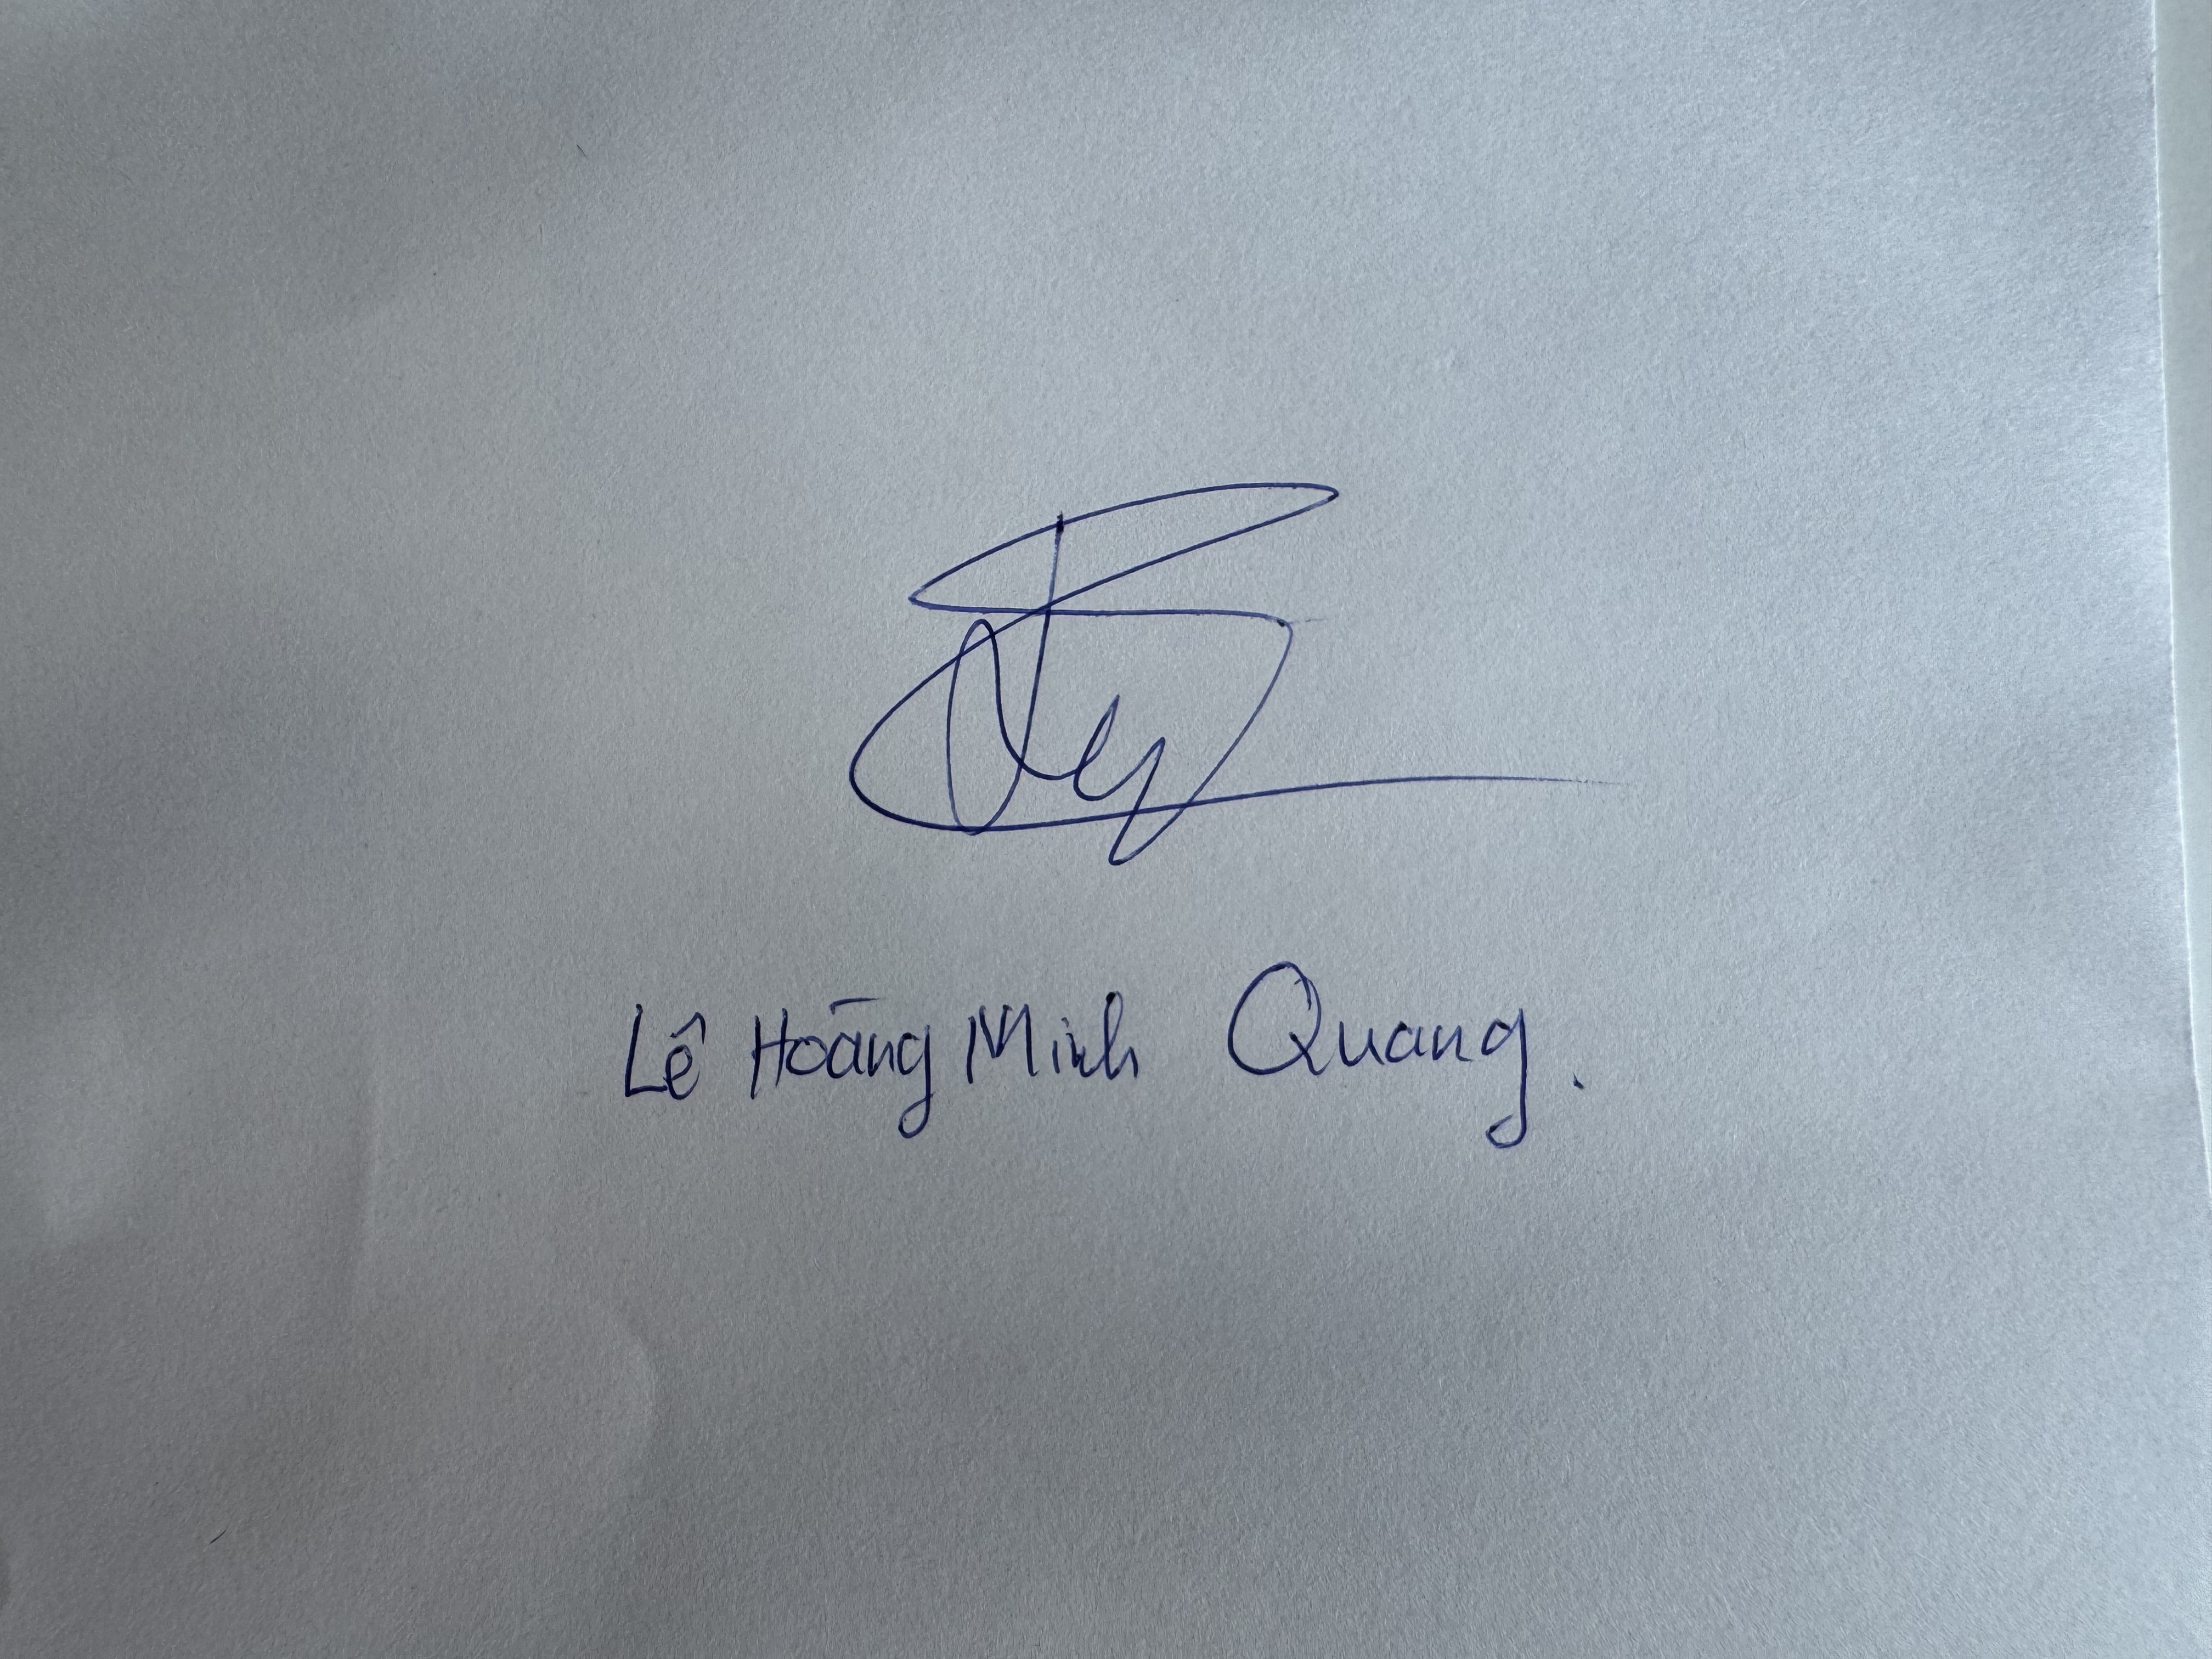 Lê Hoàng Minh Quang.